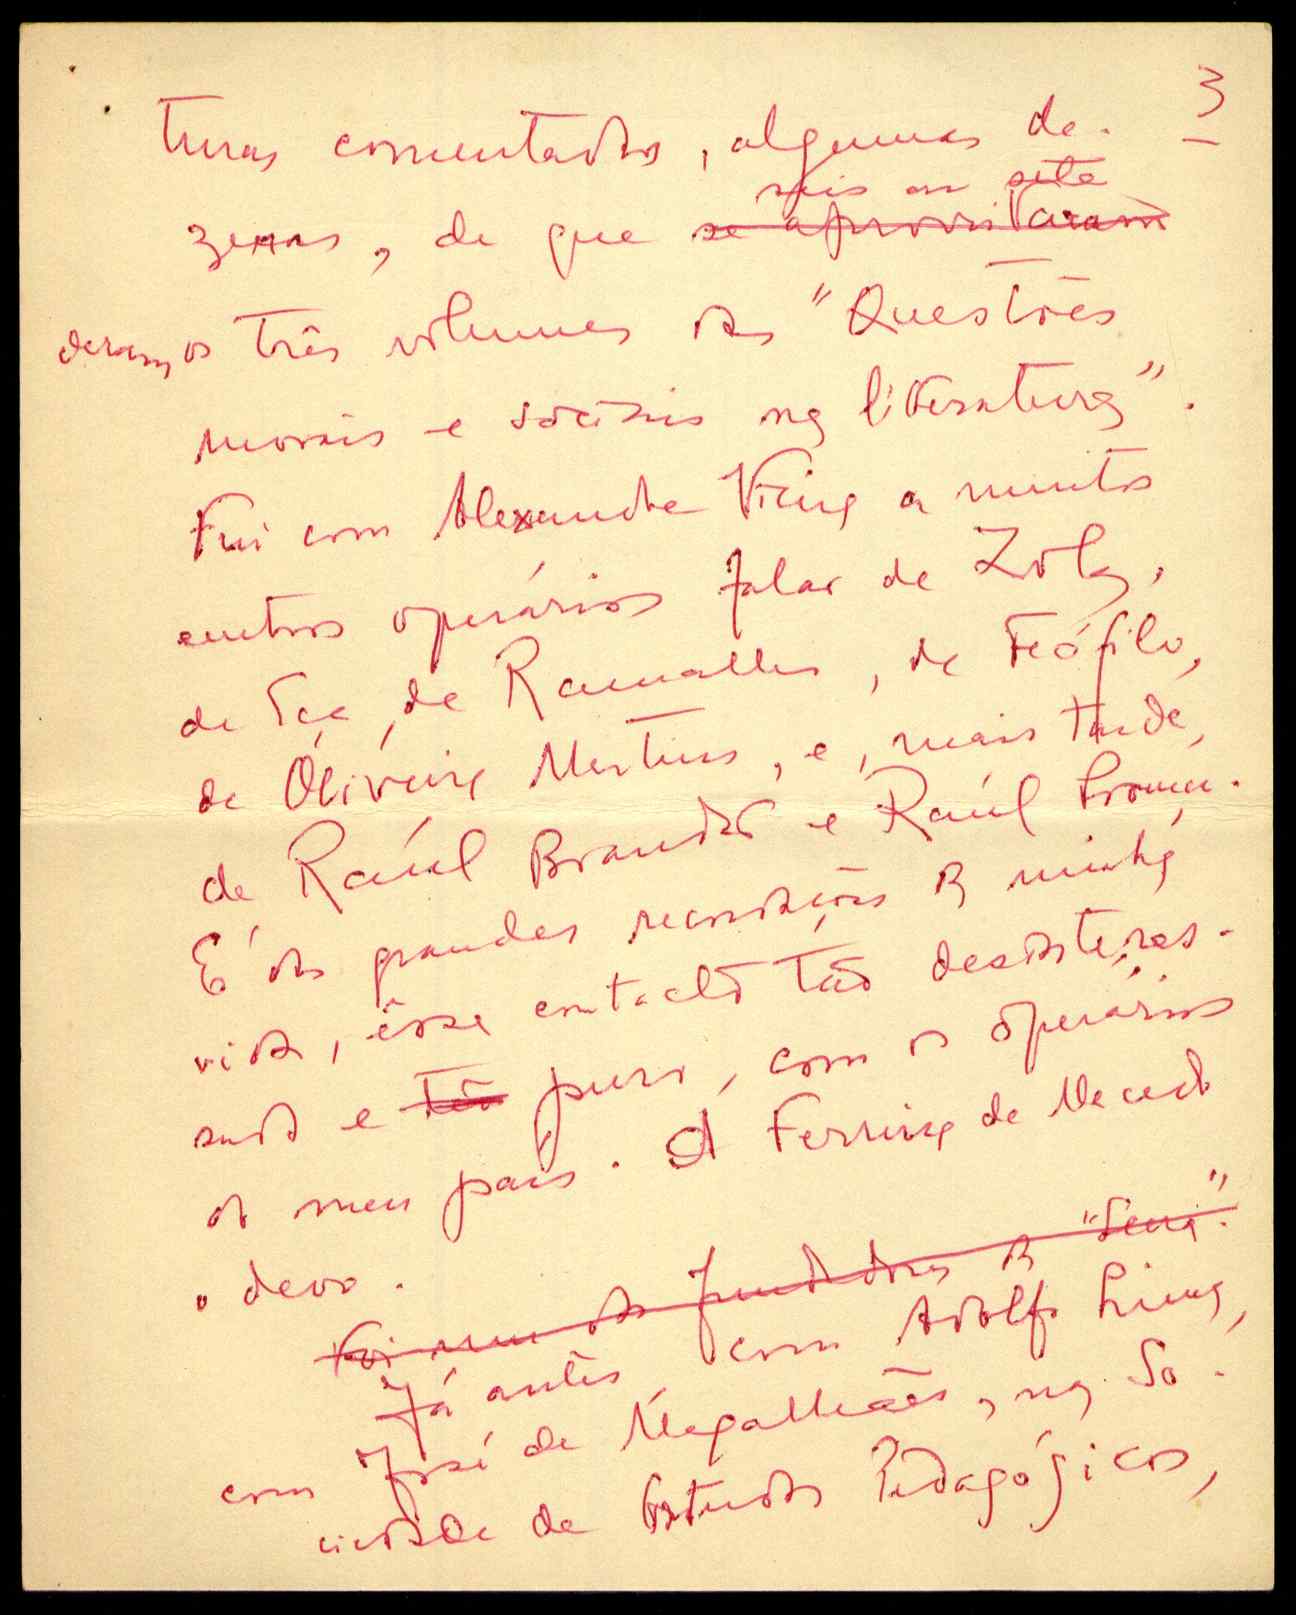 3
turas comentadas, algumas de-
seis ou sete
zenas, de que se aproveitaram
deram os três volumes das "Questões
morais e sociais na literatura".
Fui com Alexandre Vieira a muitos
centros operários falar de Zola,
de Eça, de Ramalho, de Teófilo,
de Oliveira Martins, e, mais tarde,
de Raúl Brandão e Raúl Proença.
É das grandes recordações da minha
vida, êsse contacto tão desinteres-
sado e tão puro, com os operários
do meu país. A Ferreira de Macedo
o devo.
Foi um dos fundadores da "Seara".
Já antes, com Adolfo Lima,
com José de Magalhães, na So-
ciedade de Estudos Pedagógicos,